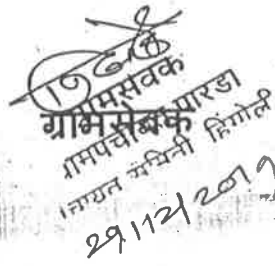 ग्रामसेवक
ग्रामसेवक
ग्रामपंचायत पारडा
पंचायत समिती हिंगोली
29/12/2019